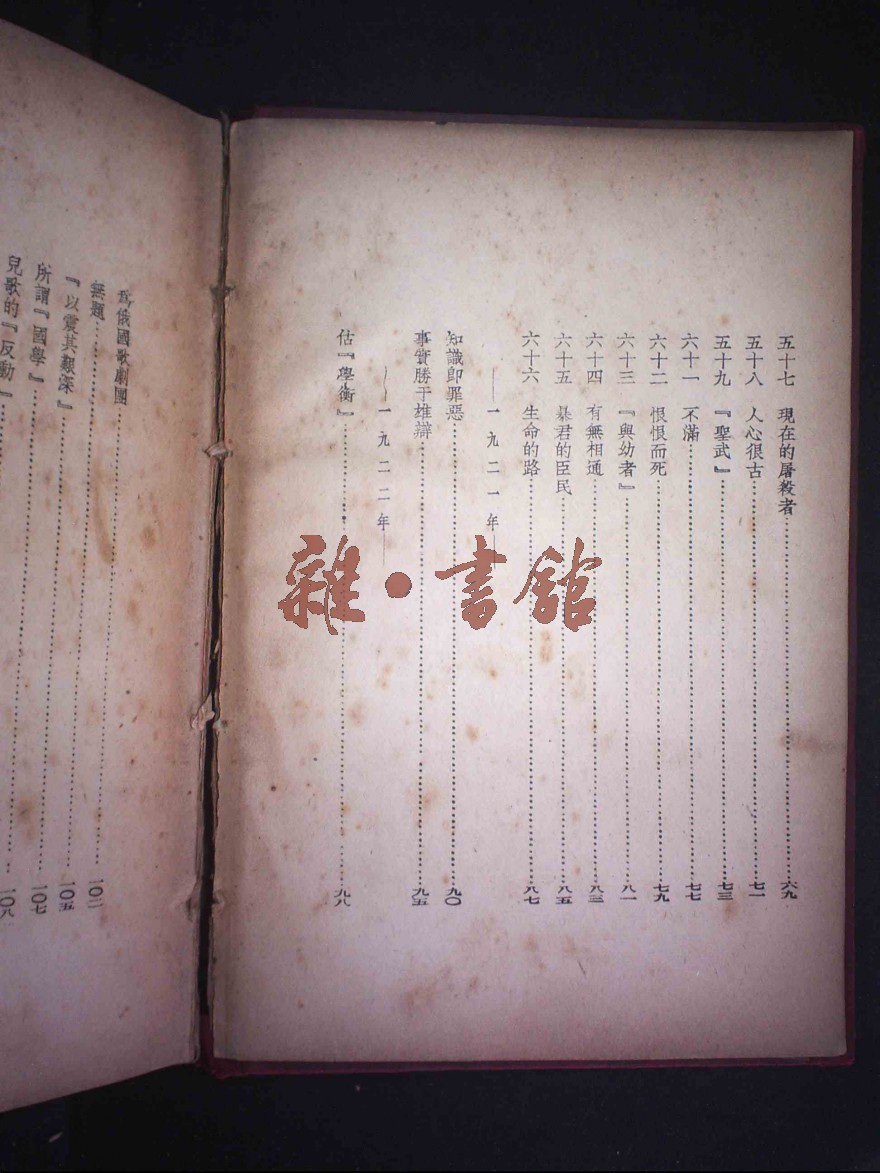 五十七　現在的屠殺者……六九
五十八　人心很古……七一
五十九　『聖武』……七三
六十一　不滿……七七
六十二　恨恨而死……七九
六十三　『與幼者』……八一
六十四　有無相通……八三
六十五　暴君的臣民……八五
六十六　生命的路……八七
——一九二一年——
知識即罪惡……九〇
事實勝于雄辯……九五
——一九二二年——
估『學衡』……九八
為俄國歌劇團
無題……一〇二
『以震其艱深』……一〇五
所謂『國學』……一〇七
兒歌的『反動』……一〇八
雜·書館